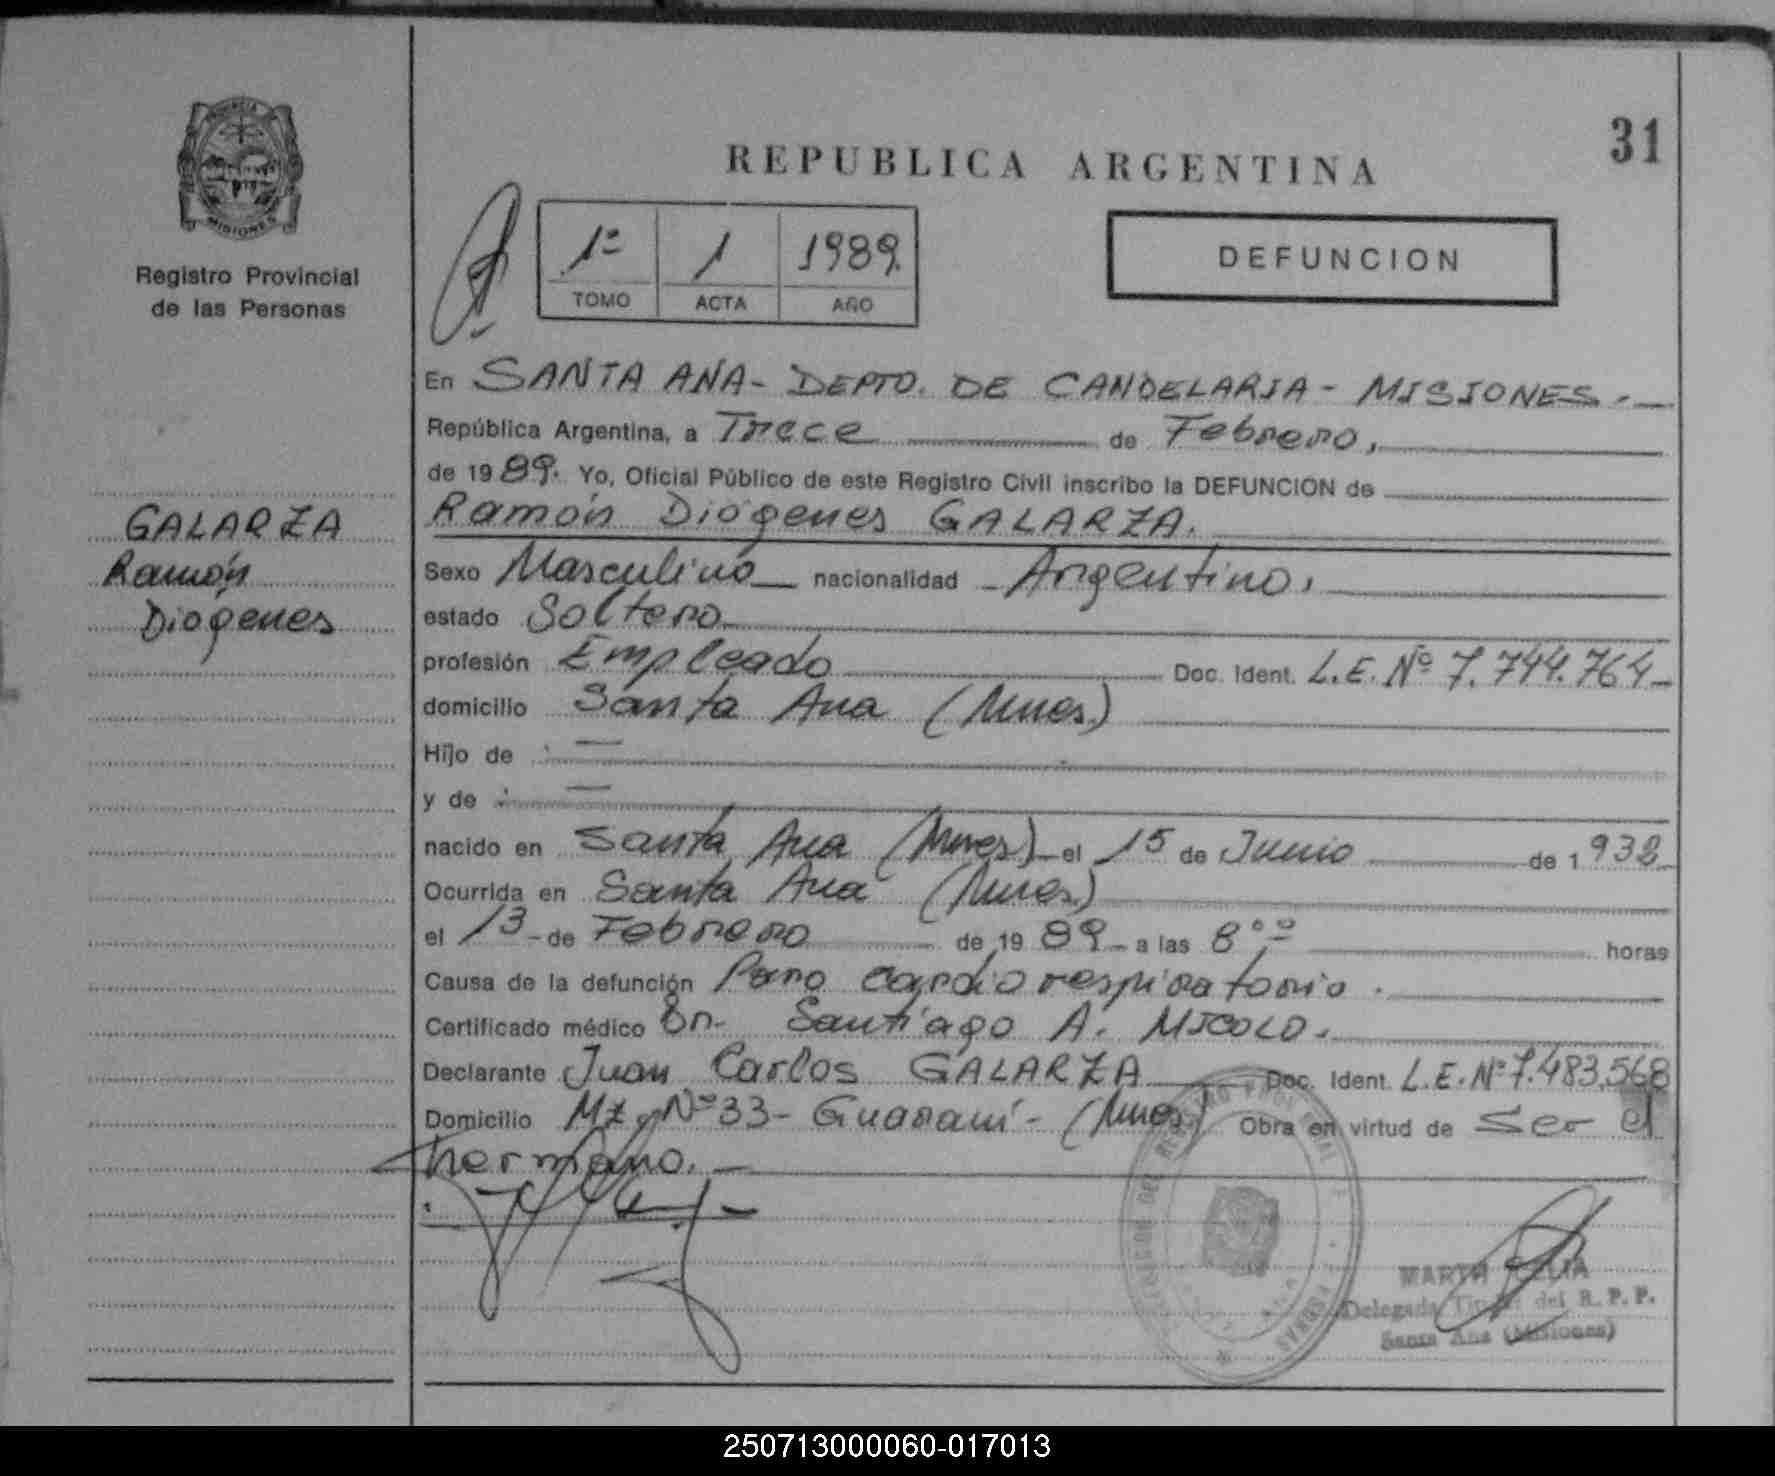 PROVINCIA
MISIONES
Registro Provincial
de las Personas
GALARZA
Ramón
Diógenes
31
REPUBLICA ARGENTINA
1º 1 1989.
TOMO ACTA AÑO
DEFUNCION
En SANTA ANA - DEPTO. DE CANDELARIA - MISIONES.-
República Argentina, a Trece de Febrero,
de 1989. Yo, Oficial Público de este Registro Civil inscribo la DEFUNCION de
Ramón Diógenes GALARZA.
Sexo Masculino nacionalidad Argentino,
estado Soltero
profesión Empleado Doc. Ident. L.E. Nº 7.744.764-
domicilio Santa Ana (Mnes.)
Hijo de : —
y de : —
nacido en Santa Ana (Mnes) el 15 de Junio de 1932
Ocurrida en Santa Ana (Mnes.)
el 13 - de Febrero de 1989 - a las 8°° horas
Causa de la defunción Paro cardiorespiratorio.
Certificado médico Dr. Santiago A. MICOLO.
Declarante Juan Carlos GALARZA Doc. Ident. L.E. Nº 7.483.568
Domicilio Mz Nº 33 - Guaraní - (Mnes) Obra en virtud de ser el
hermano.
MARTA CELIA
Delegada Titular del R. P. P.
Santa Ana (Misiones)
250713000060-017013